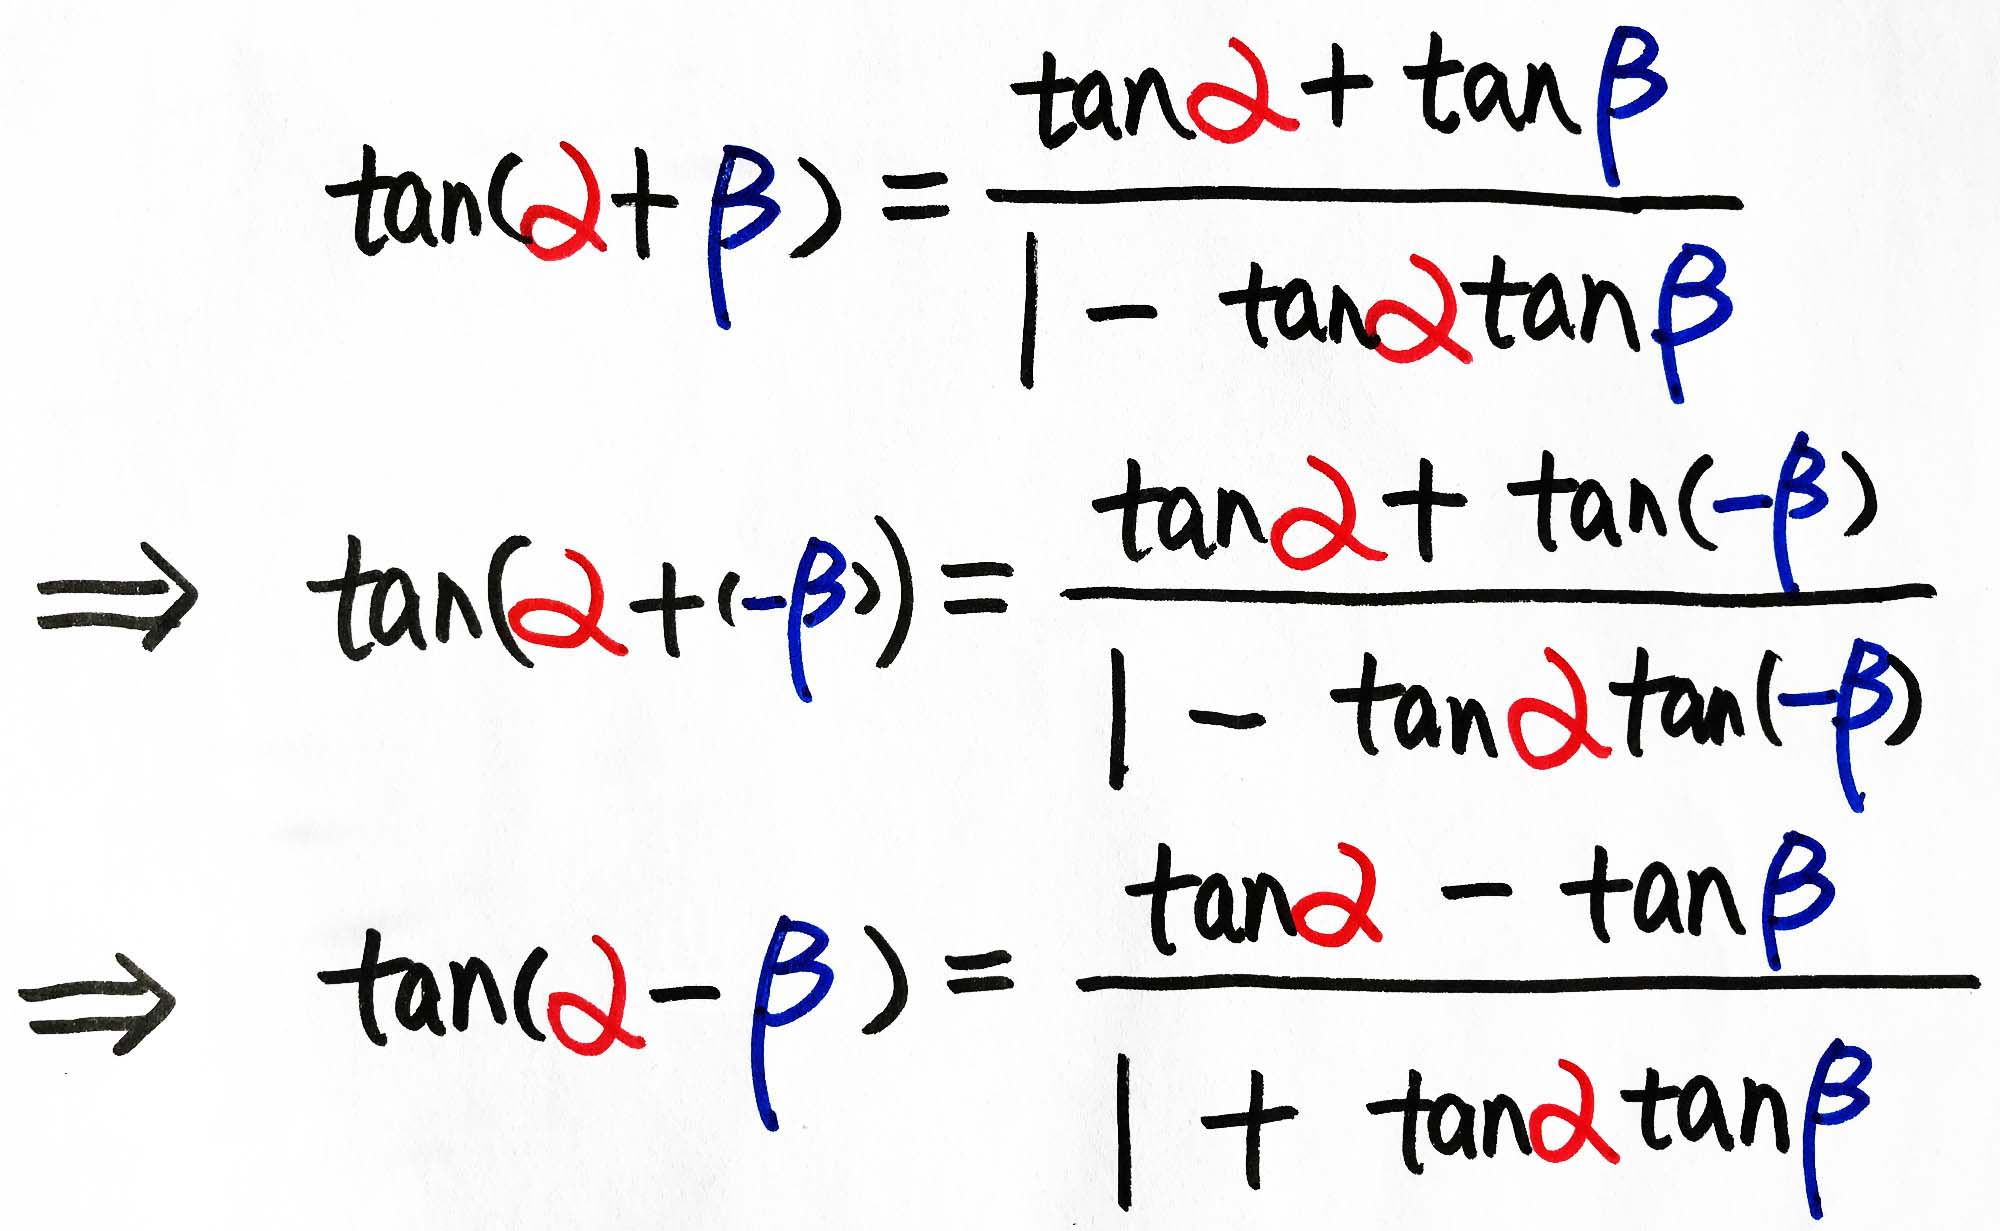 tan(α+β) = (tanα + tanβ) / (1 - tanα tanβ)
⇒ tan(α+(-β)) = (tanα + tan(-β)) / (1 - tanα tan(-β))
⇒ tan(α-β) = (tanα - tanβ) / (1 + tanα tanβ)